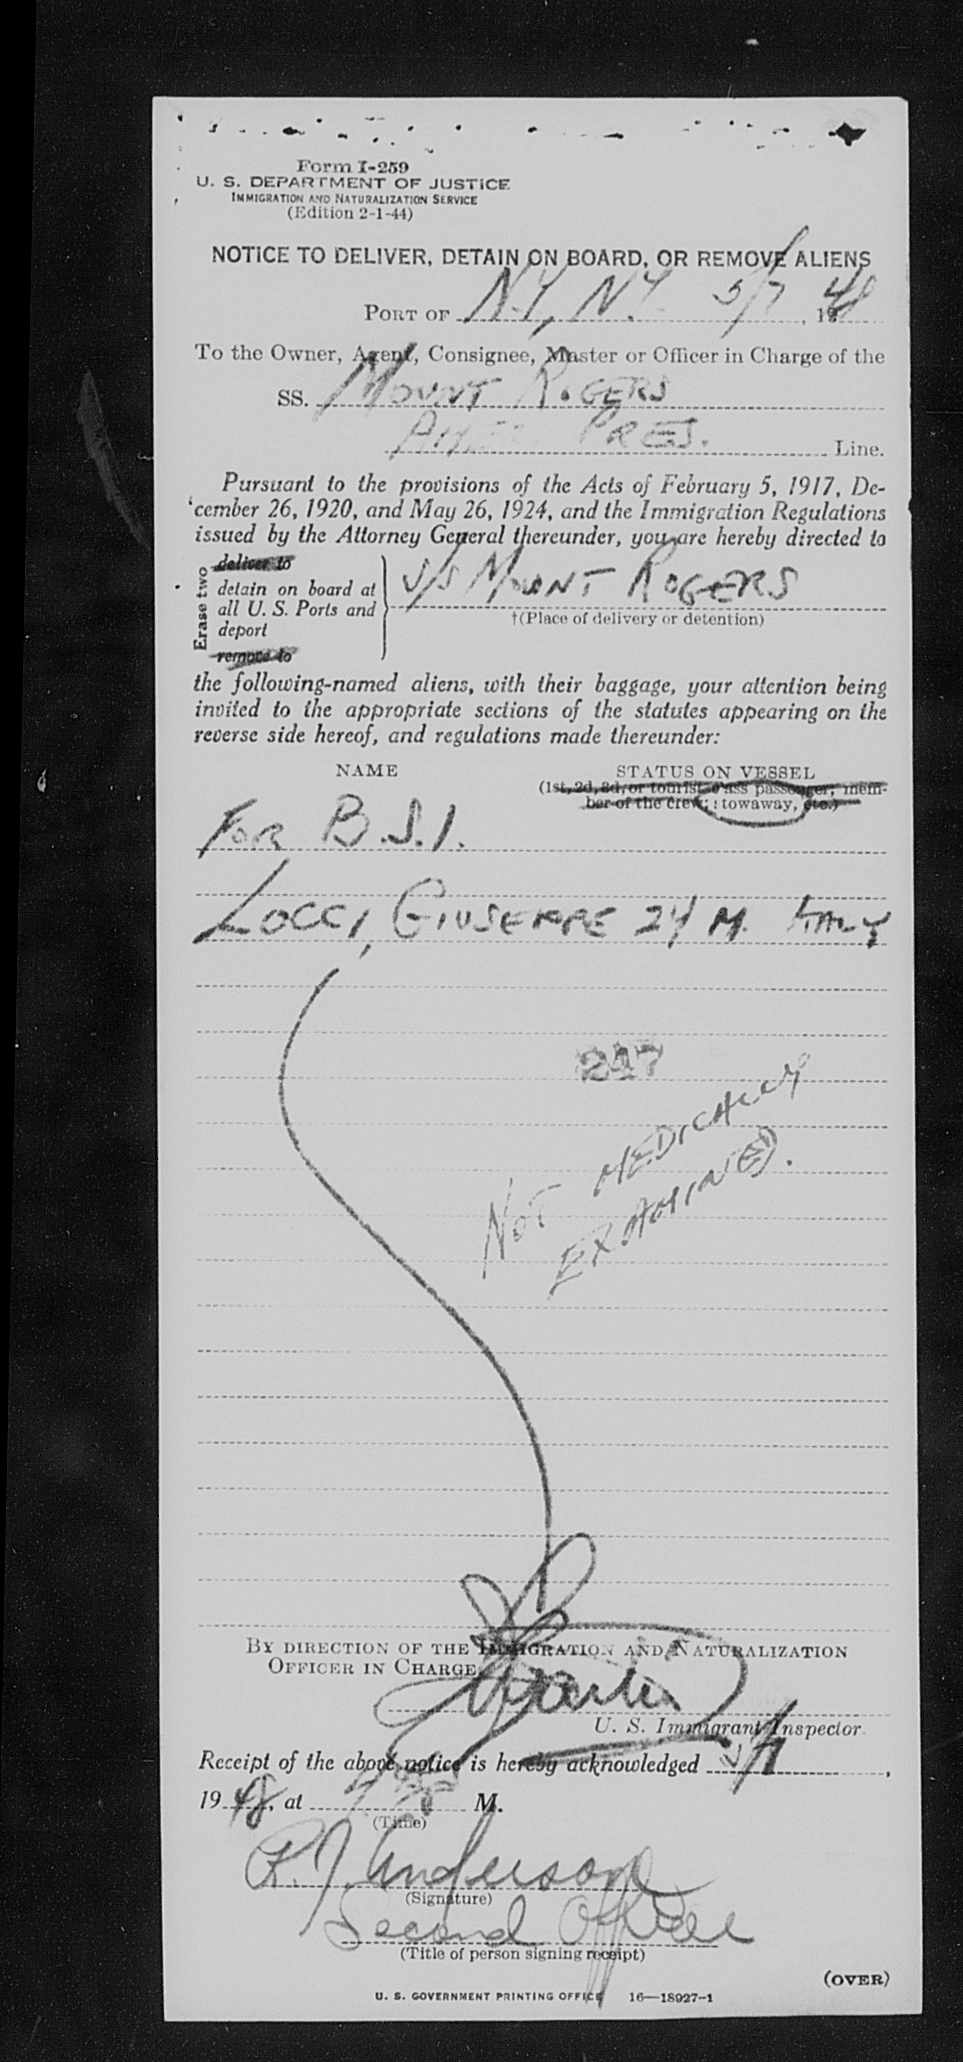 Form I-259
U. S. DEPARTMENT OF JUSTICE
IMMIGRATION AND NATURALIZATION SERVICE
(Edition 2-1-44)
NOTICE TO DELIVER, DETAIN ON BOARD, OR REMOVE ALIENS
PORT OF N.Y, N.Y. 5/7, 1948
To the Owner, Agent, Consignee, Master or Officer in Charge of the
SS. MOUNT ROGERS
AMER. PRES. Line.
Pursuant to the provisions of the Acts of February 5, 1917, De-
cember 26, 1920, and May 26, 1924, and the Immigration Regulations
issued by the Attorney General thereunder, you are hereby directed to
Erase two
deliver to
detain on board at
all U. S. Ports and
deport
remove to
S/S MOUNT ROGERS
†(Place of delivery or detention)
the following-named aliens, with their baggage, your attention being
invited to the appropriate sections of the statutes appearing on the
reverse side hereof, and regulations made thereunder:
NAME STATUS ON VESSEL
(1st, 2d, 3d, or tourist-class passenger, mem-
ber of the crew, stowaway, etc.)
FOR B.S.I.
LOCCI, GIUSEPPE 24 M. ITALY
247
NOT MEDICALLY
EXAMINED.
BY DIRECTION OF THE IMMIGRATION AND NATURALIZATION
OFFICER IN CHARGE
U. S. Immigrant Inspector.
Receipt of the above notice is hereby acknowledged 5/7,
1948, at M.
(Time)
R. J. Anderson
(Signature)
Second Officer
(Title of person signing receipt)
(OVER)
U. S. GOVERNMENT PRINTING OFFICE 16—18927-1